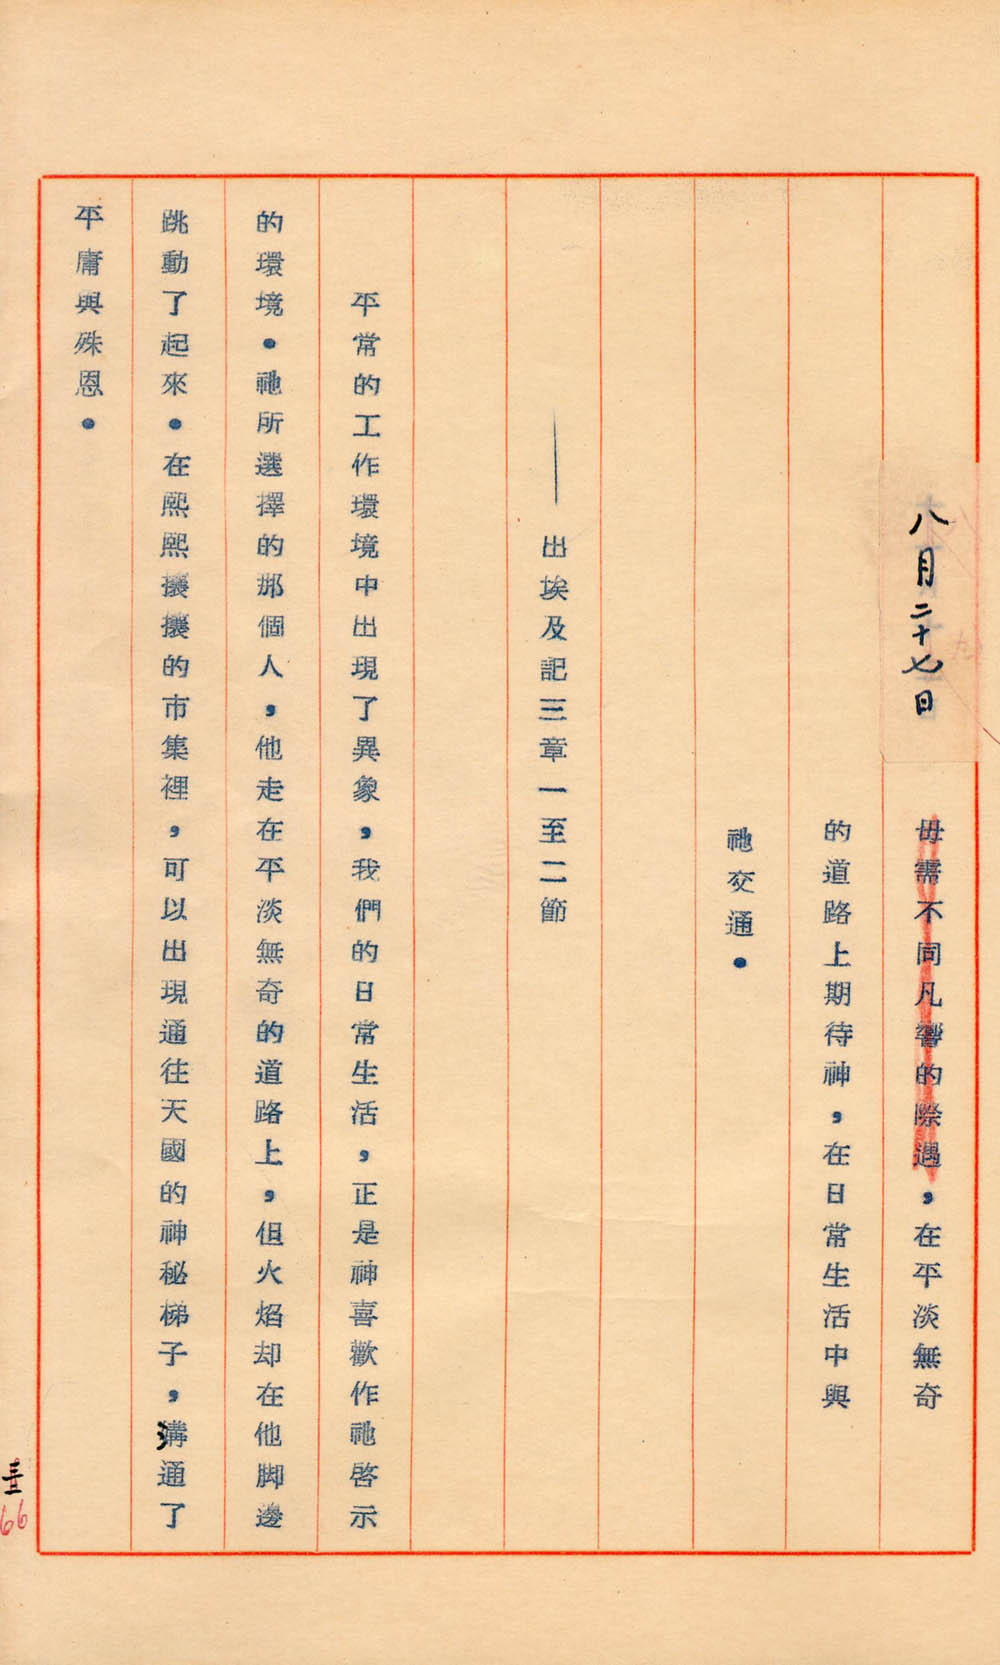 八月二十七日
毋需不同凡響的際遇，在平淡無奇
的道路上期待神，在日常生活中與
祂交通。
——出埃及記三章一至二節
平常的工作環境中出現了異象，我們的日常生活，正是神喜歡作祂啓示
的環境。祂所選擇的那個人，他走在平淡無奇的道路上，但火焰却在他脚邊
跳動了起來。在熙熙攘攘的市集裡，可以出現通往天國的神秘梯子，溝通了
平庸與殊恩。
66